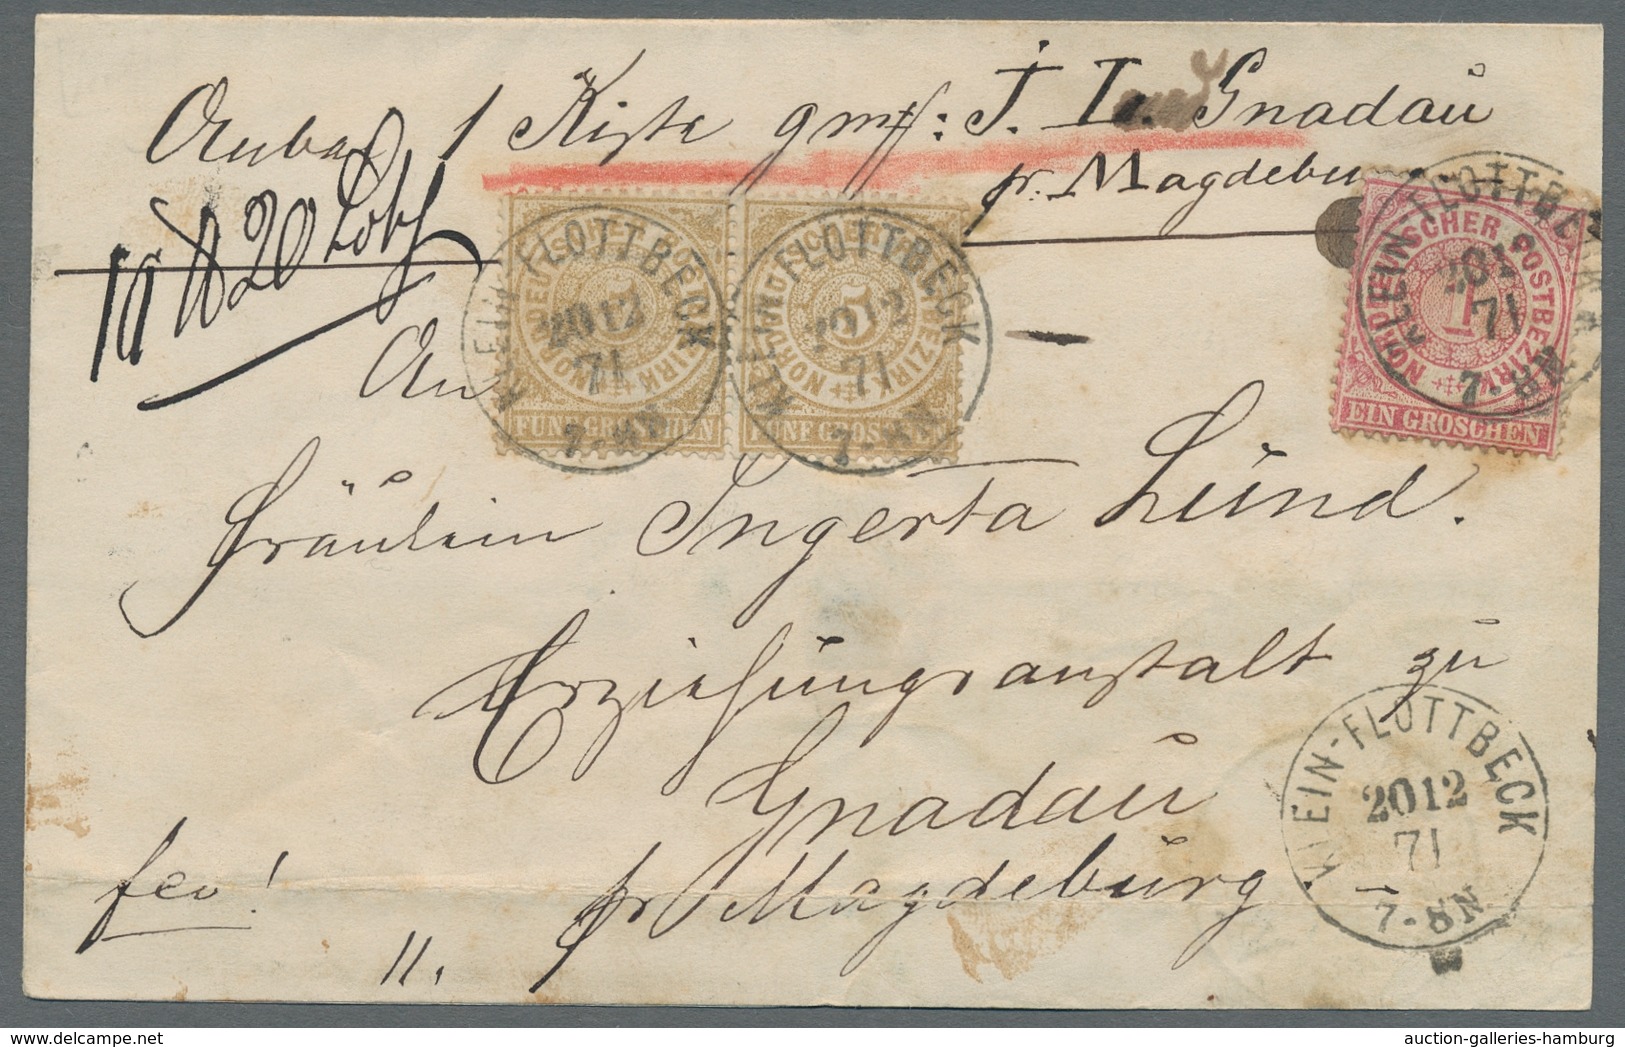 Anbei 1 Kiste gmk: J. L. Gnadau
pr. Magdebu
20 Loth
An
KLEIN-FLOTTBECK
2012
71
7-8N
FÜNF GROSCHEN
KLEIN-FLOTTBECK
2012
71
7-8N
FÜNF GROSCHEN
NORDDEUTSCHER POSTBEZIRK
1
EIN GROSCHEN
KLEIN-FLOTTBECK
71
7-8N
Fräulein Ingerta Lund.
Erziehungsanstalt zu
Gnadau
pr Magdeburg
fco!
11.
KLEIN-FLOTTBECK
2012
71
7-8N.
auction-galleries-hamburg